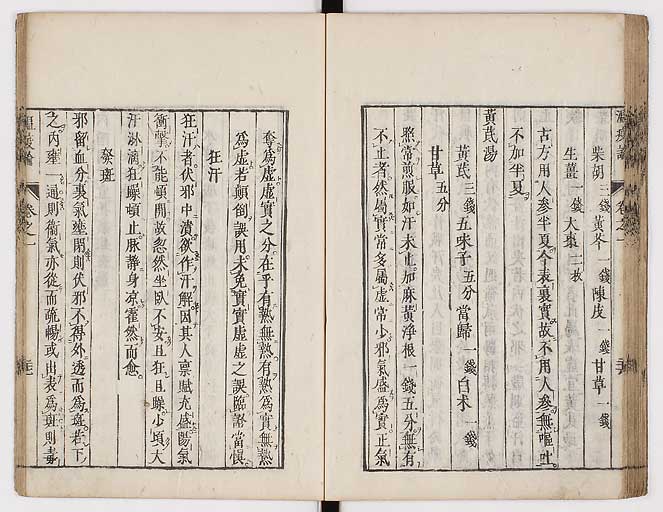 柴胡三錢黃芩一錢陳皮一錢甘草一錢
生薑一錢大棗二枚
古方用人參半夏今表裏實故不用人參無嘔吐
不加半夏
黃芪湯
黃芪三錢五味子五分當歸一錢白朮一錢
甘草五分
照常煎服如汗未止加麻黃淨根一錢五分無有
不止者然屬實常多屬虛常少邪氣盛為實正氣
奪為虛虛實之分在乎有熱無熱有熱為實無熱
為虛若顛倒誤用未免實實虛虛之誤臨證當慎
狂汗
狂汗者伏邪中潰欲作汗解因其人稟賦充盛陽氣
衝擊不能頓開故忽然坐臥不安且狂且躁少頃大
汗淋漓狂躁頓止脉靜身凉霍然而愈
發斑
邪留血分裏氣壅閉則伏邪不得外透而為斑若下
之內壅一通則衞氣亦從而疏暢或出表為斑則毒
卷之一